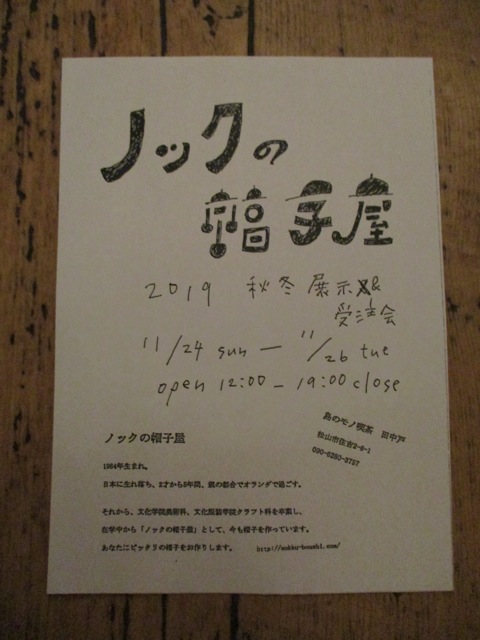 ノックの
帽子屋
2019 秋冬 展示&
受注会
11/24 sun — 11/26 tue
open 12:00 - 19:00 close
島のモノ喫茶 田中戸
松山市住吉2-8-1
ノックの帽子屋
1964年生まれ。
日本に生れ落ち、2才から5年間、親の都合でオランダで過ごす。
それから、文化学院美術科、文化服装学院クラフト科を卒業し、
在学中から「ノックの帽子屋」として、今も帽子を作っています。
あなたにピッタリの帽子をお作りします。